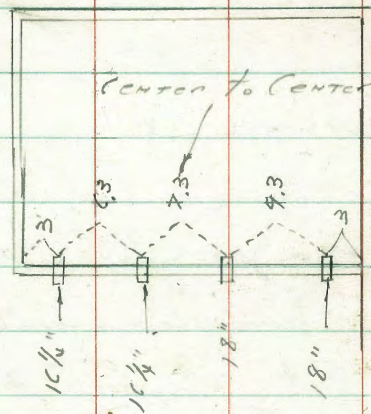 Center to Center
3
6.3
7.3
9.3
3
16 1/4"
16 1/4"
18"
18"